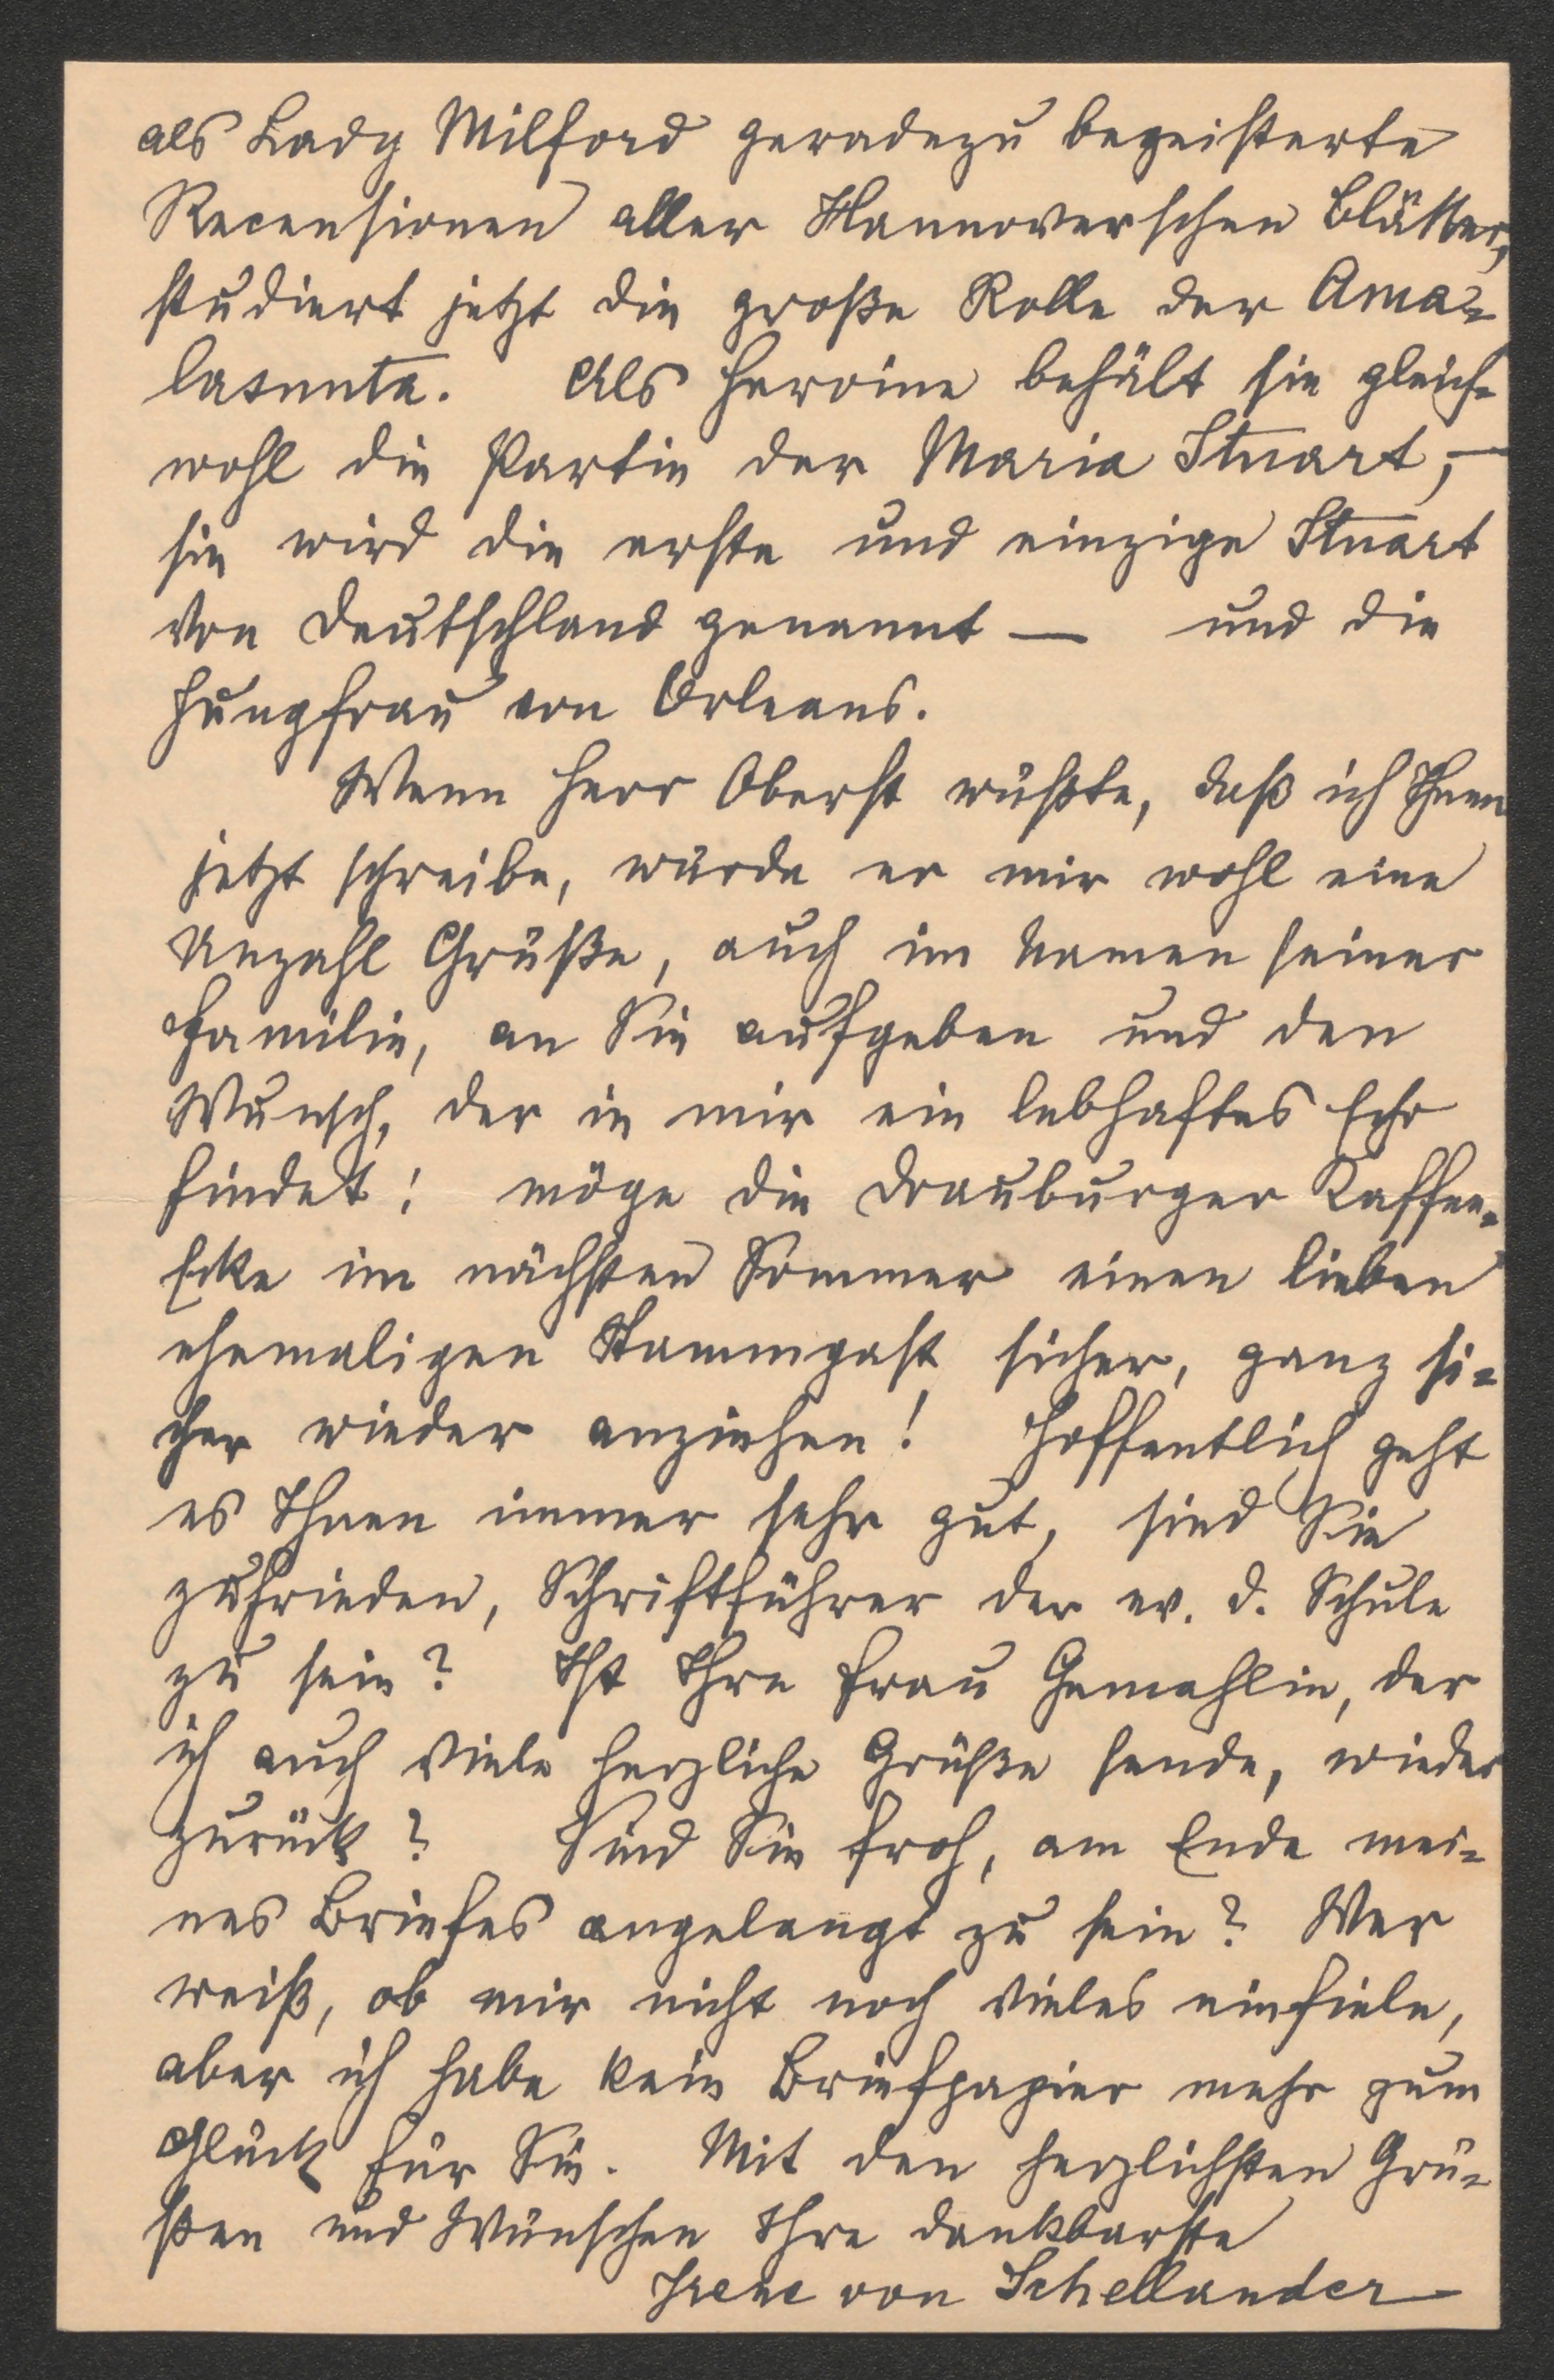 als Lady Milford geradezu begeisterte
Recensionen aller Hannoverschen Blätter,
studiert jetzt die große Rolle der Ama-
lasunta. Als Heroine behält sie gleich-
wohl die Partie der Maria Stuart, –
sie wird die erste und einzige Stuart
von Deutschland genannt — und die
Jungfrau von Orleans.
Wenn Herr Oberst wüßte, daß ich Ihnen
jetzt schreibe, würde er mir wohl eine
Unzahl Grüße, auch im Namen seiner
Familie, an Sie aufgeben und den
Wunsch, der in mir ein lebhaftes Echo
findet: möge die Drauburger Kaffee-
Ecke im nächsten Sommer einen lieben
ehemaligen Stammgast sicher, ganz si-
cher wieder anziehen! Hoffentlich geht
es Ihnen immer sehr gut, sind Sie
zufrieden, Schriftführer der ev. d. Schule
zu sein? Ist Ihre Frau Gemahlin, der
ich auch viele herzliche Grüße sende, wieder
zurück? Sind Sie froh, am Ende mei-
nes Briefes angelangt zu sein? Wer
weiß, ob mir nicht noch vieles einfiele,
aber ich habe kein Briefpapier mehr zum
Glück für Sie. Mit den herzlichsten Grü-
ßen und Wünschen Ihre dankbarste
Irene von Schellander